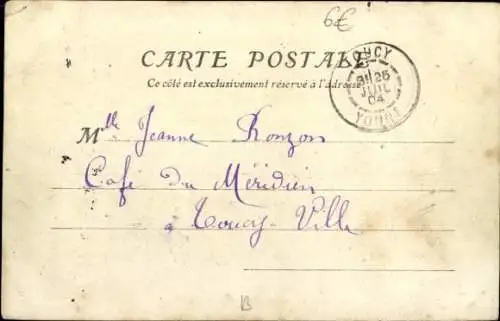 6€
CARTE POSTALE
Ce côté est exclusivement réservé à l'adresse
TOUCY
25
JUIL
04
YONNE
Mlle Jeanne Ronzon
Café du Méridien
à Toucy-Ville
B